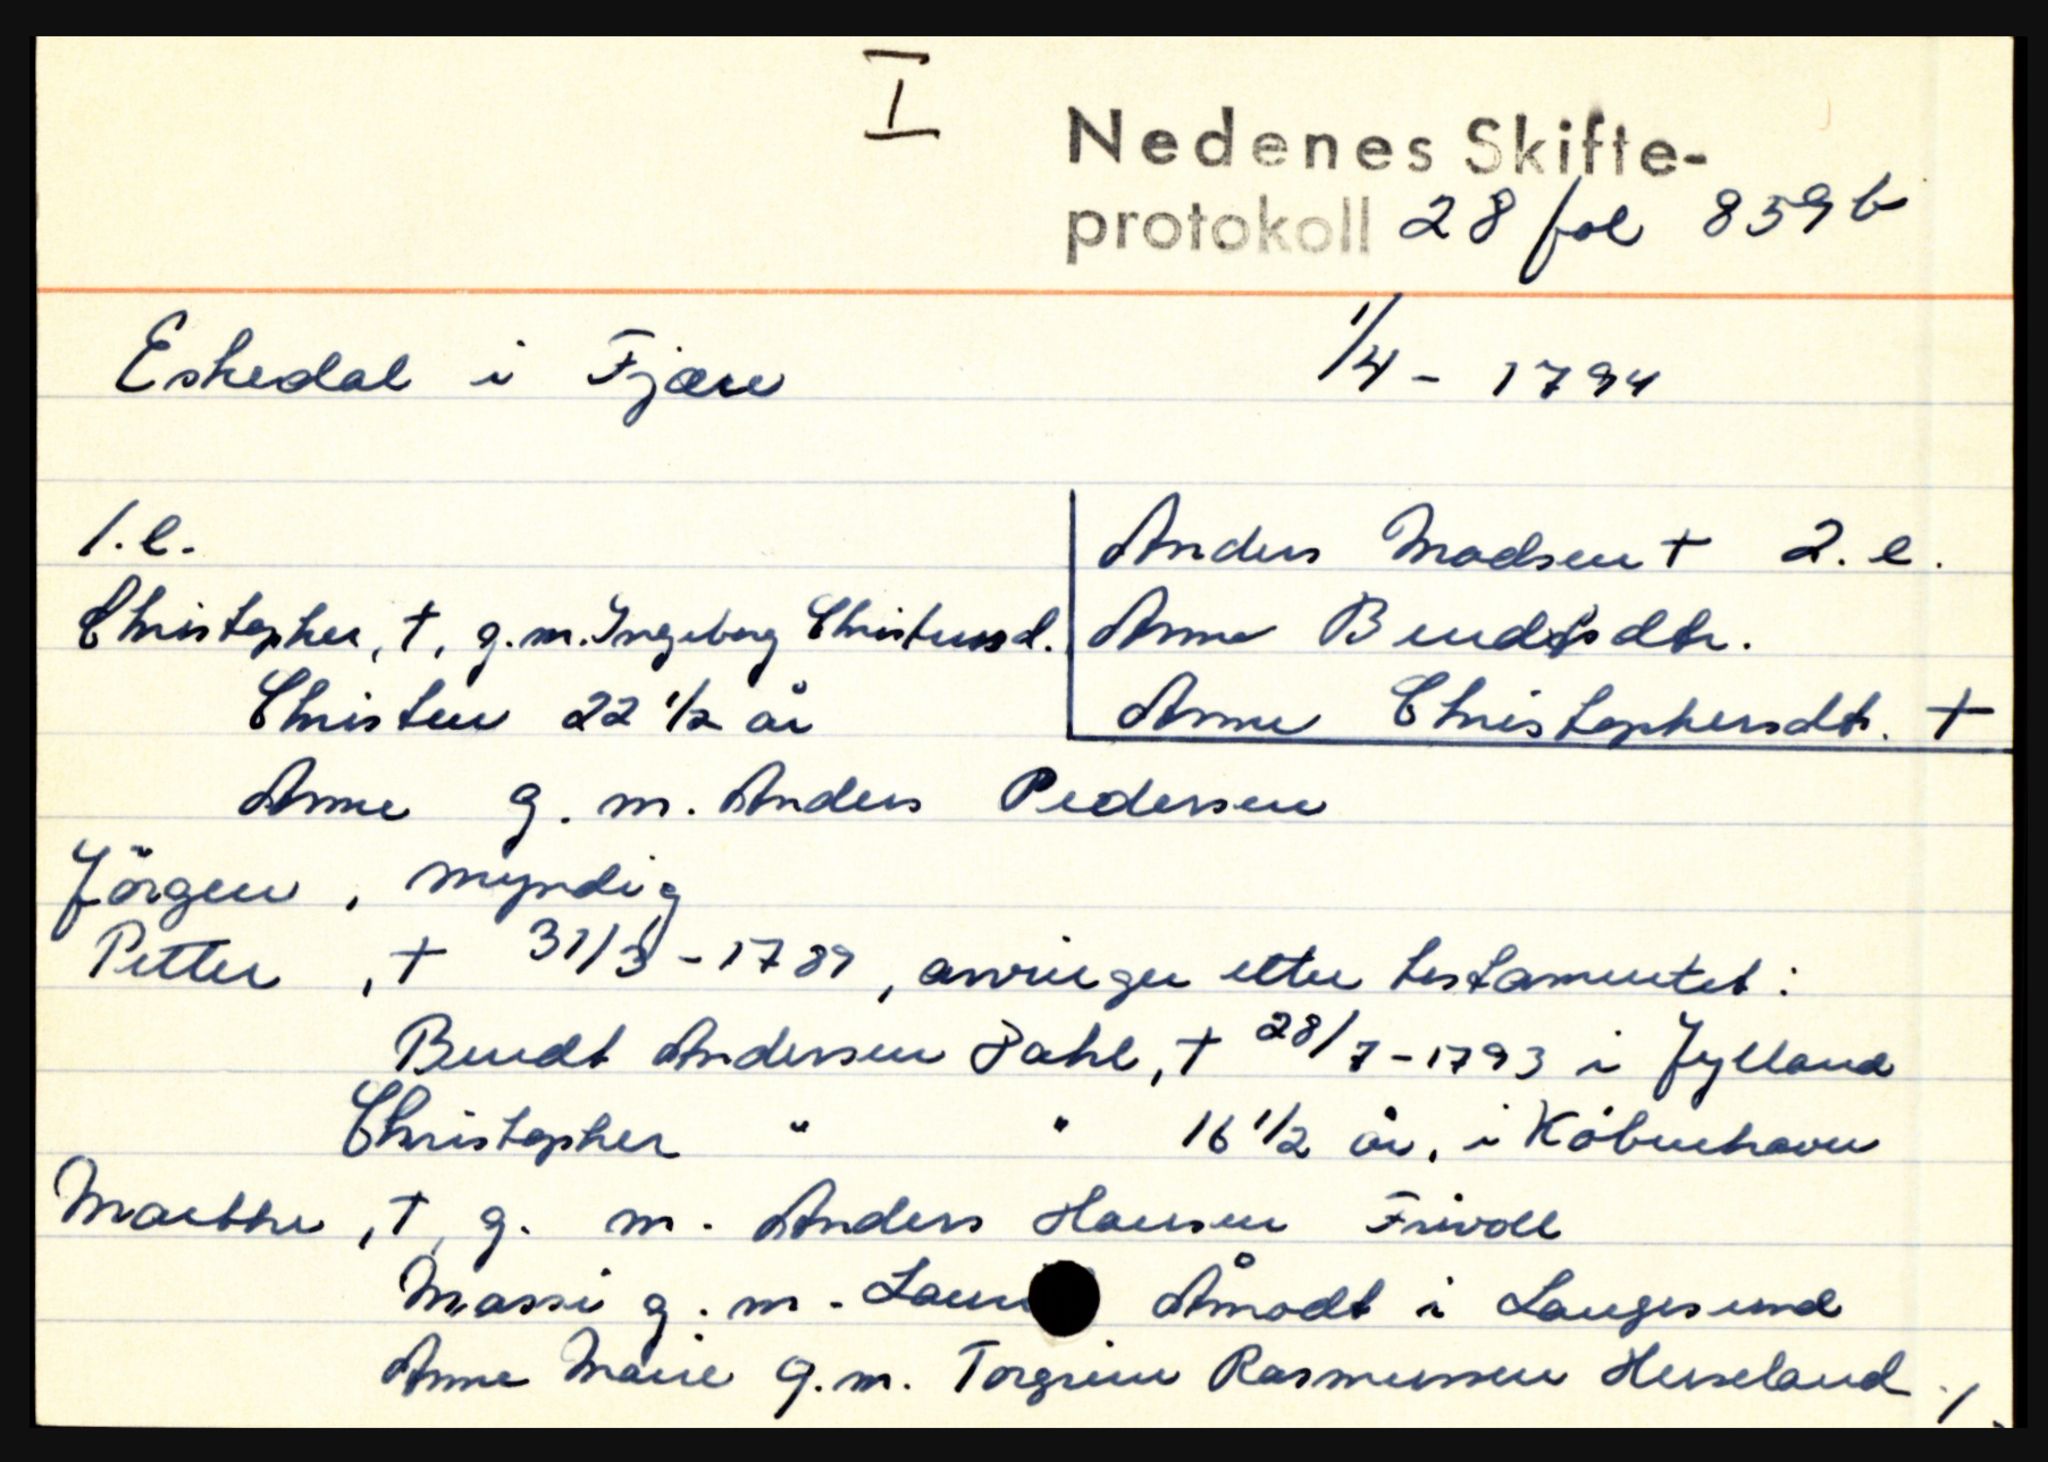 I
Nedenes Skifte-
protokoll 28 fol 859 b
Eskedal i Fjære 1/4 - 1794
1. e.
Anders Madsen † 2. e.
Christopher, †, g. m. Ingeborg Christensd.
Anne Bendtsdtr.
Christen 22 1/2 år
Anne Christophersdtr. †
Anne g. m. Anders Pedersen
Jörgen, myndig
Petter, † 31/3 - 1789, arvinger etter testamentet:
Bendt Andersen Dahl, † 28/7 - 1793 i Jylland
Christopher " " 16 1/2 år, i Köbenhavn
Marthe, †, g. m. Anders Hansen Frivoll
Massi g. m. Åmodt i Langesund
Anne Marie g. m. Torgrim Rasmussen Hesseland ./.